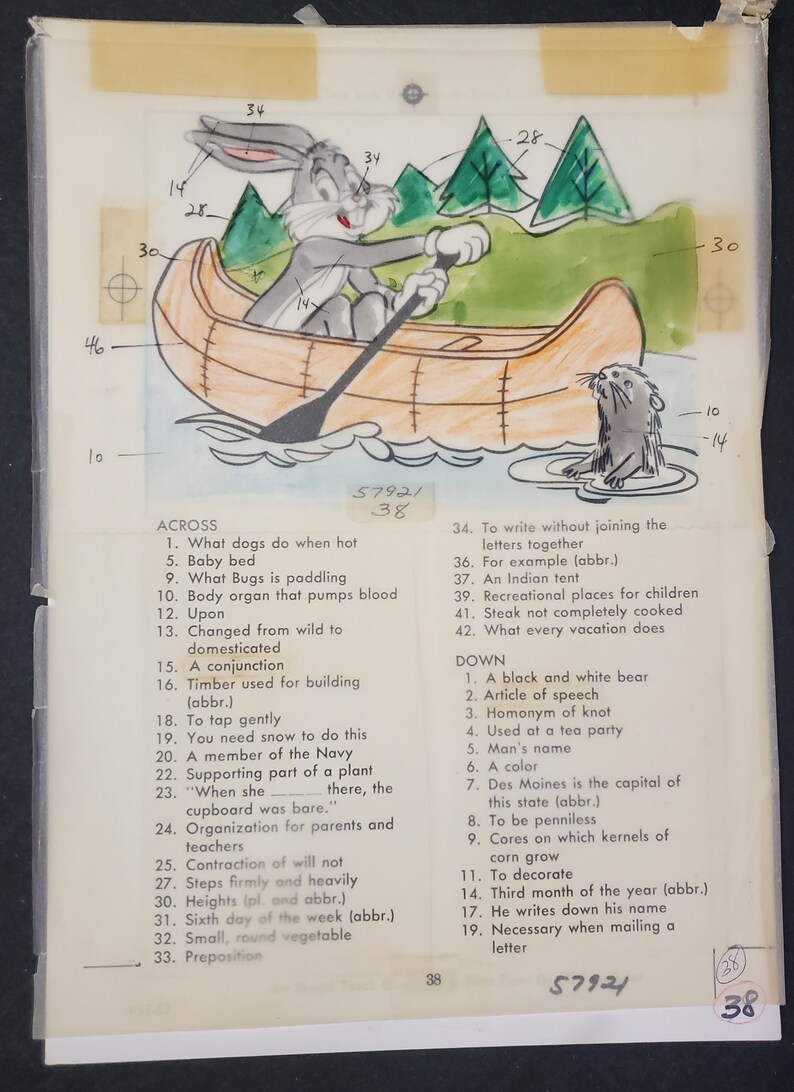 34
34
28
14
28
30
30
14
46
10
14
10
57921
38
ACROSS
1. What dogs do when hot
5. Baby bed
9. What Bugs is paddling
10. Body organ that pumps blood
12. Upon
13. Changed from wild to
domesticated
15. A conjunction
16. Timber used for building
(abbr.)
18. To tap gently
19. You need snow to do this
20. A member of the Navy
22. Supporting part of a plant
23. "When she ___ there, the
cupboard was bare."
24. Organization for parents and
teachers
25. Contraction of will not
27. Steps firmly and heavily
30. Heights (pl. and abbr.)
31. Sixth day of the week (abbr.)
32. Small, round vegetable
33. Preposition
34. To write without joining the
letters together
36. For example (abbr.)
37. An Indian tent
39. Recreational places for children
41. Steak not completely cooked
42. What every vacation does
DOWN
1. A black and white bear
2. Article of speech
3. Homonym of knot
4. Used at a tea party
5. Man's name
6. A color
7. Des Moines is the capital of
this state (abbr.)
8. To be penniless
9. Cores on which kernels of
corn grow
11. To decorate
14. Third month of the year (abbr.)
17. He writes down his name
19. Necessary when mailing a
letter
38
57921
38
38